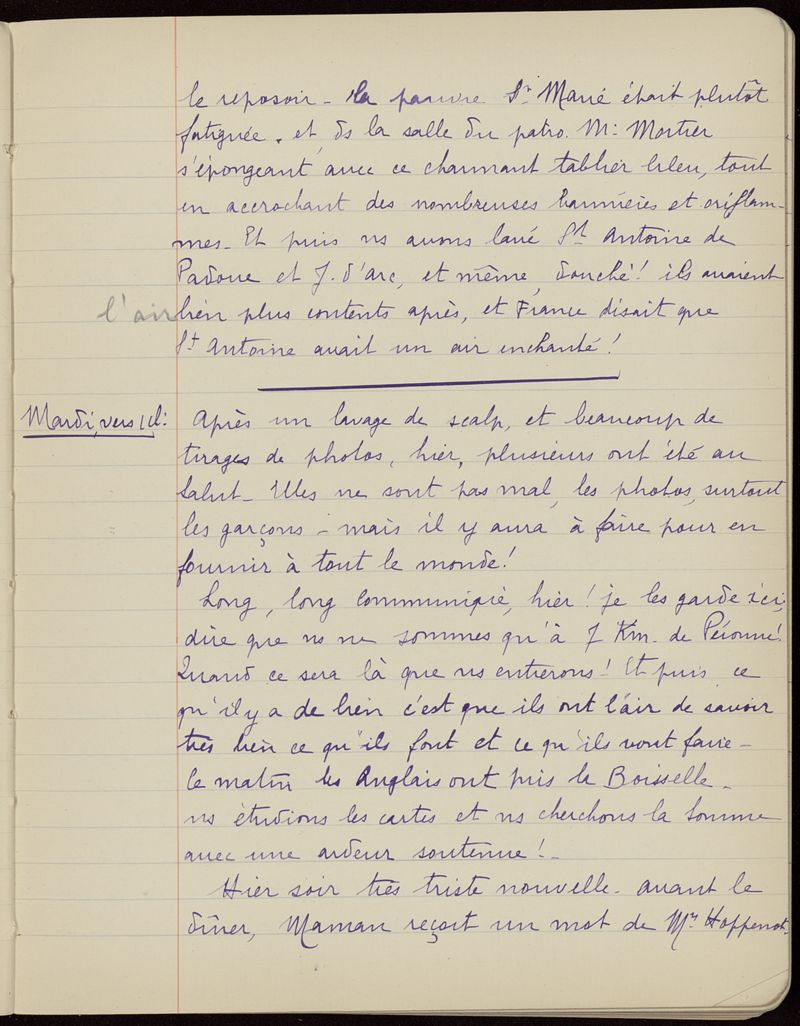 le reposoir - la pauvre Sr Marie était plutôt
fatiguée. et ds la salle du patro. Mr Mortier
s'épongeant avec ce charmant tablier bleu, tout
en accrochant des nombreuses bannières et oriflam-
mes - Et puis ns avons lavé St Antoine de
Padoue et J. d'arc, et même, douché! ils avaient
l'air bien plus contents après, et France disait que
St Antoine avait un air enchanté!
Mardi, vers 1 Après un lavage de scalp, et beaucoup de
tirages de photos, hier, plusieurs ont été au
Salut - Elles ne sont pas mal, les photos, surtout
les garçons - mais il y aura à faire pour en
fournir à tout le monde!
Long, long communiqué, hier! je les garde ici,
dire que ns ne sommes qu'à 7 Km. de Péronne!
Quand ce sera là que ns entrerons! Et puis ce
qu'il y a de bien c'est que ils ont l'air de savoir
très bien ce qu'ils font et ce qu'ils vont faire -
le matin les Anglais ont pris la Boisselle -
ns étudions les cartes et ns cherchons la Somme
avec une ardeur soutenue! -
Hier soir très triste nouvelle - avant le
dîner, Maman reçoit un mot de Mr Hoppenot